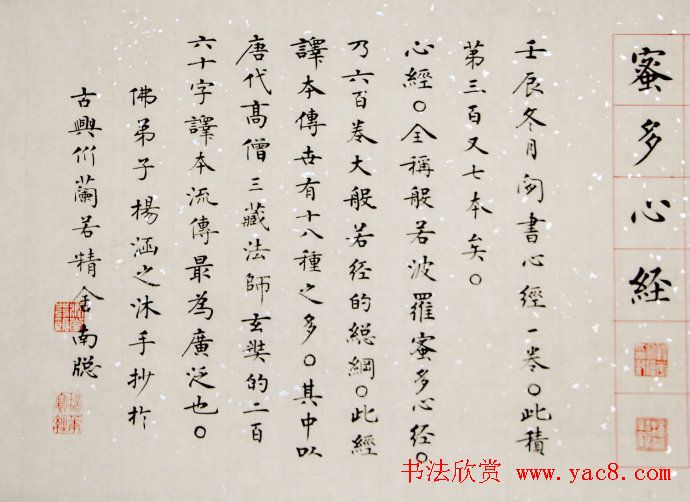 蜜多心経
壬辰冬月書心經一卷。此積
第三百又七本矣。
心經。全稱般若波羅蜜多心经。
乃六百卷大般若经的総綱。此經
譯本傳世有十八種之多。其中以
唐代高僧三藏法師玄奘的二百
六十字譯本流傳最為廣泛也。
佛弟子楊涵之沐手抄於
古興竹蘭若精舍南牕
书法欣赏 www.yac8.com